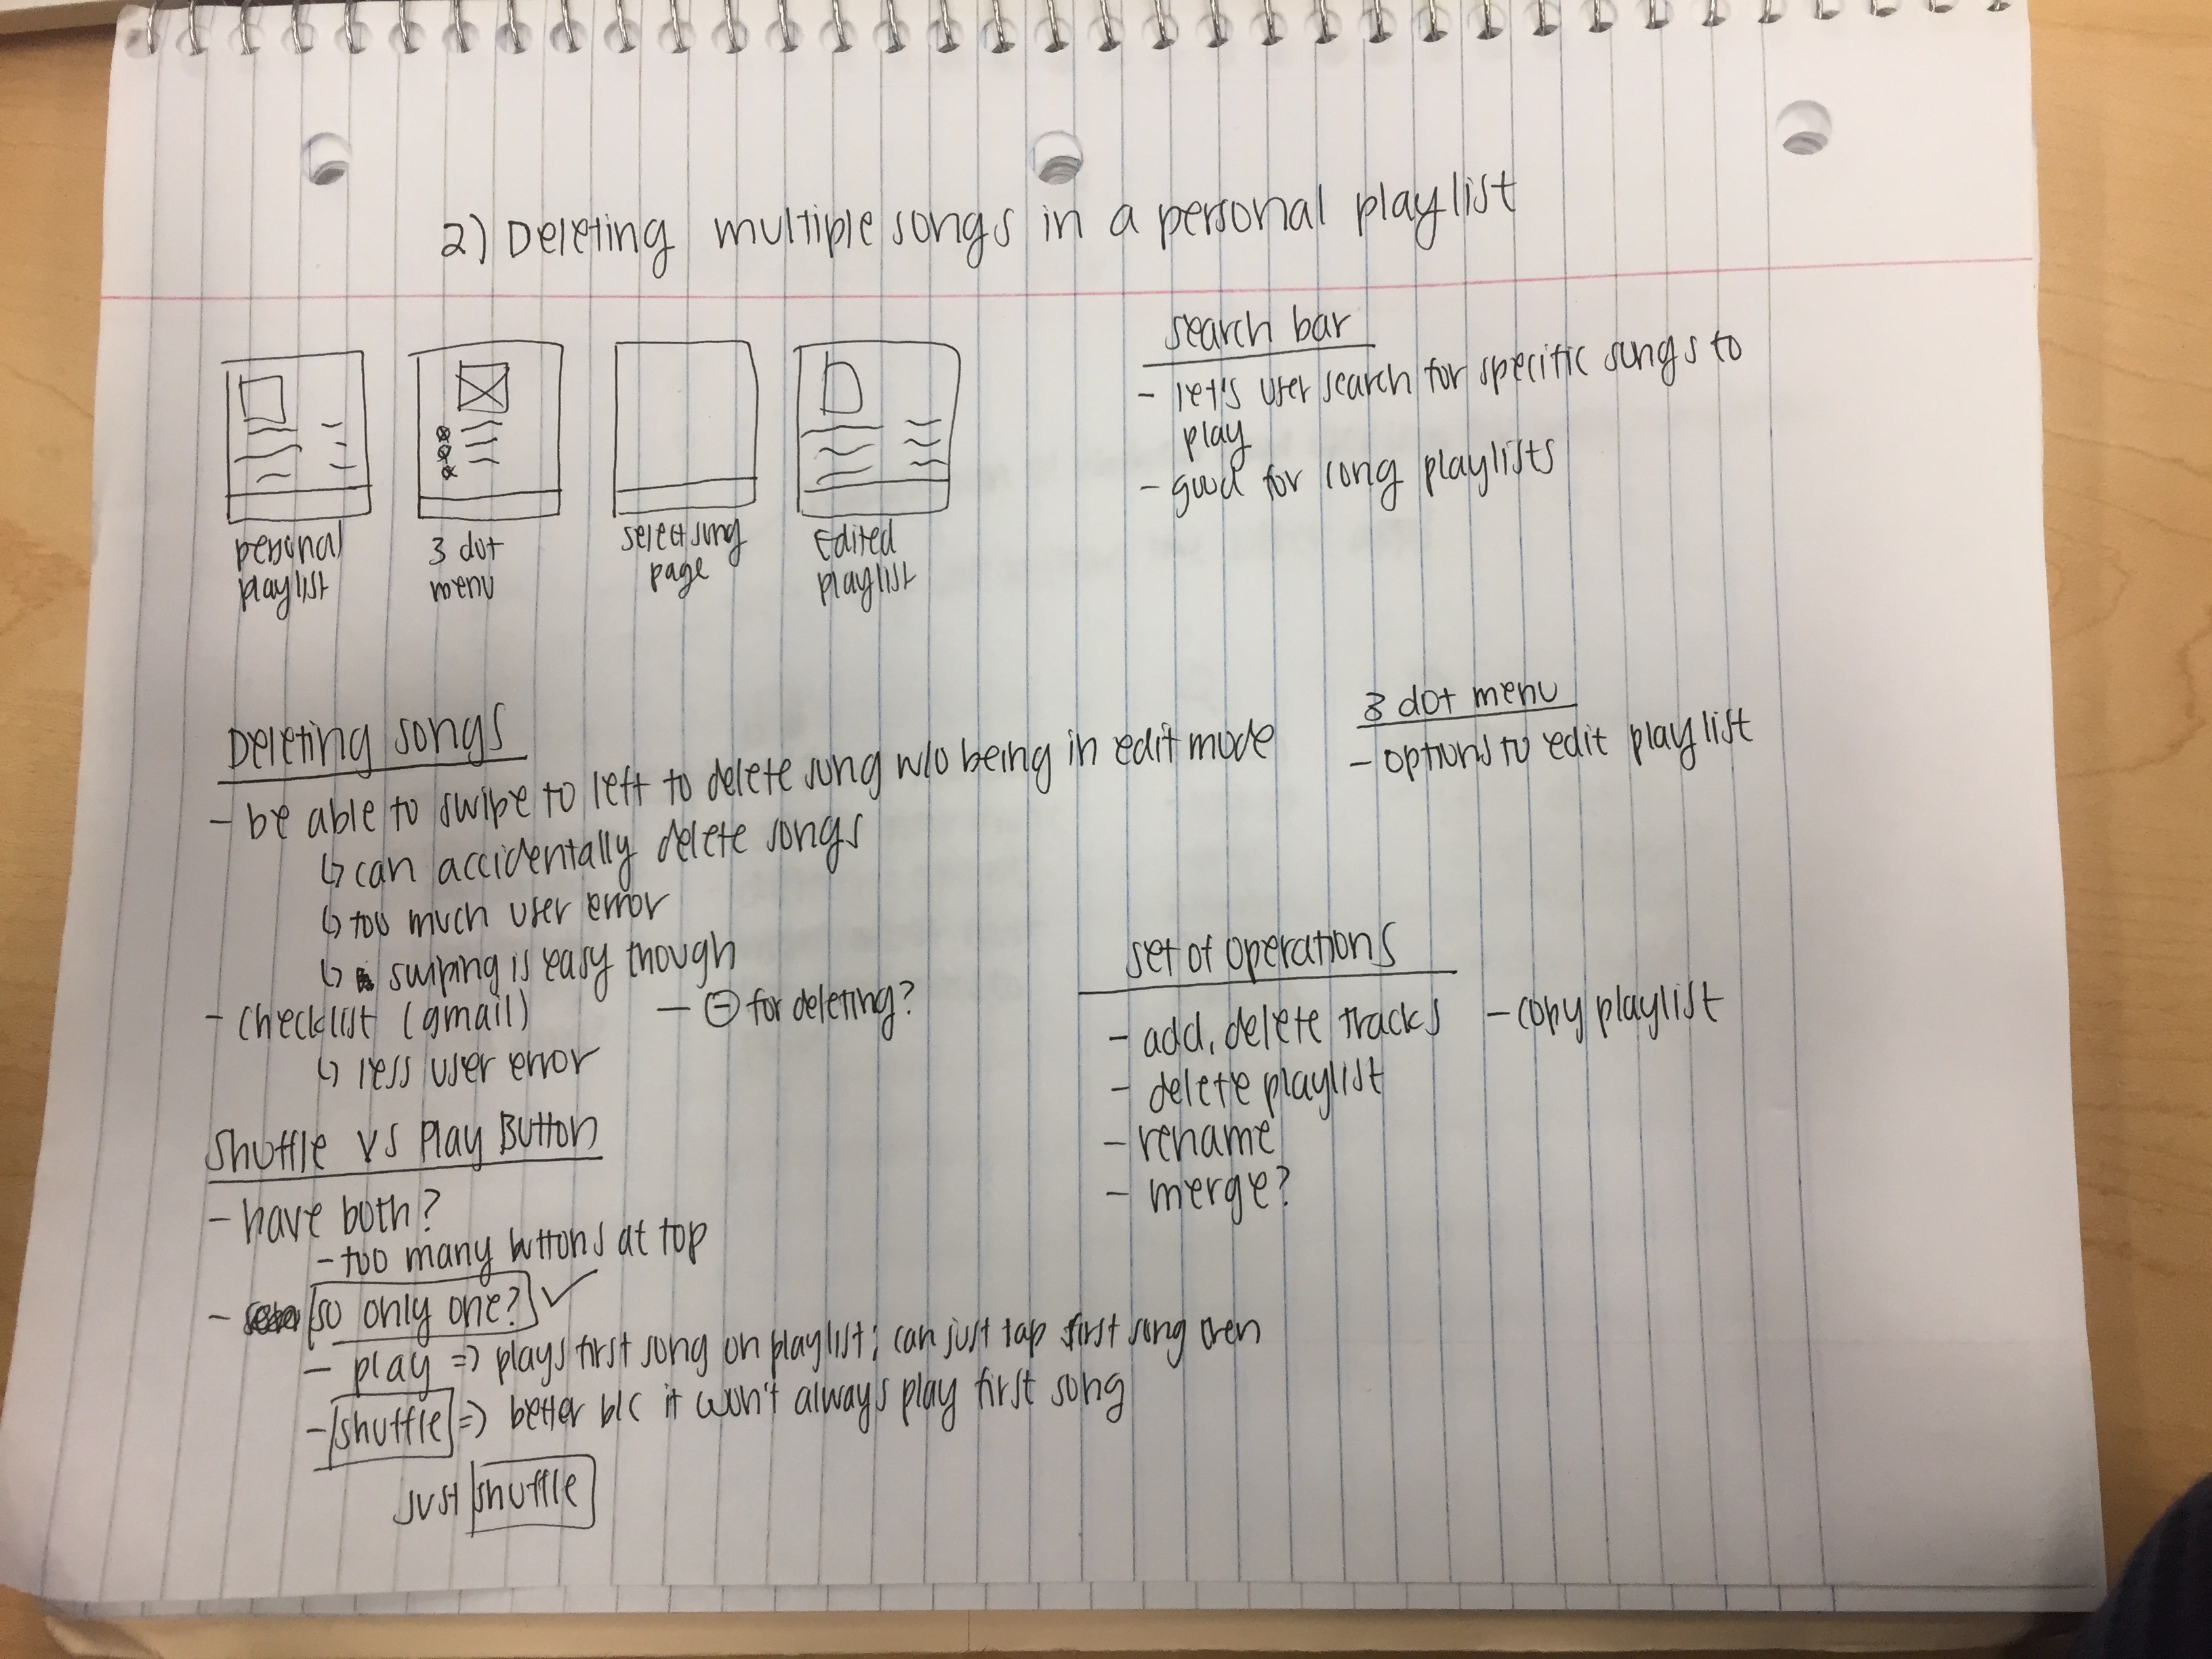 2) Deleting multiple songs in a personal playlist
personal
playlist
3 dot
menu
select song
page
Edited
playlist
search bar
- let's user search for specific songs to
play
- good for long playlists
Deleting songs
- be able to swipe to left to delete song w/o being in edit mode
↳ can accidentally delete songs
↳ too much user error
↳ swiping is easy though
- checklist (gmail)
↳ less user error
- ⊖ for deleting?
3 dot menu
- options to edit playlist
set of operations
- add, delete tracks - copy playlist
- delete playlist
- rename
- merge?
Shuffle vs Play Button
- have both?
- too many buttons at top
- so only one? ✓
- play => plays first song on playlist; can just tap first song then
- shuffle => better b/c it won't always play first song
just shuffle